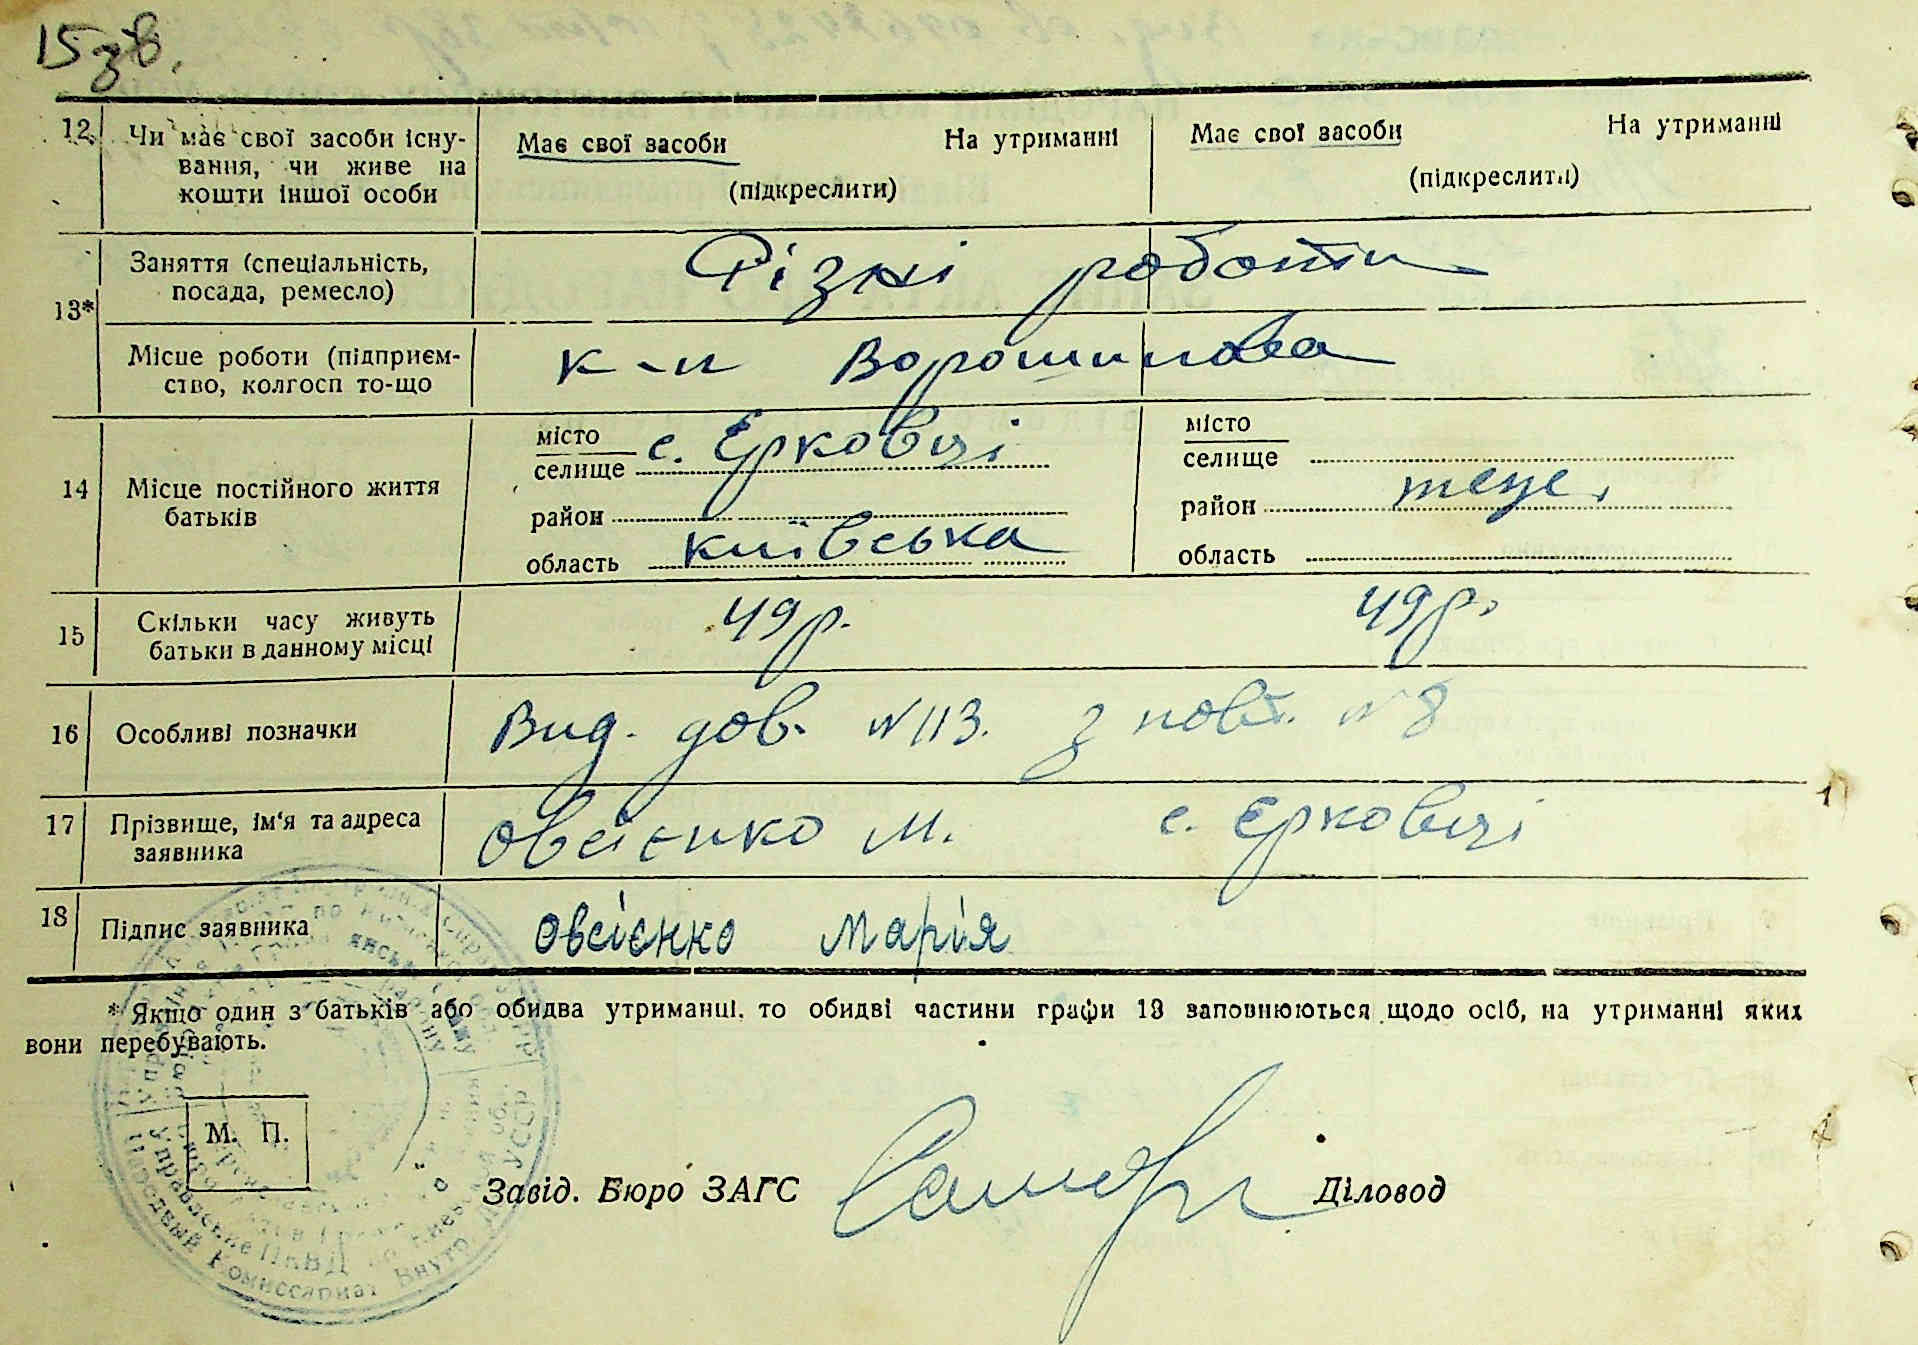 15зв.
12. Чи має свої засоби існу- Має свої засоби На утриманні Має свої засоби На утриманні
вання, чи живе на
кошти іншої особи (підкреслити) (підкреслити)
Заняття (спеціальність, Різні роботи
посада, ремесло)
13*
Місце роботи (підприєм- к-п Ворошилова
ство, колгосп то-що
місто с. Єрковці місто
селище селище
14 Місце постійного життя
батьків
район район теж.
область київська область
15 Скільки часу живуть 49р. 49р.
батьки в данному місці
16 Особливі позначки Вид. дов. №113. з повт. №8
17 Прізвище, ім'я та адреса Овсієнко М. с. Єрковці
заявника
18 Підпис заявника Овсієнко Марія
* Якщо один з батьків або обидва утриманці, то обидві частини графи 13 заповнюються щодо осіб, на утриманні яких
вони перебувають.
М. П.
Завід. Бюро ЗАГС Діловод
Народный Комиссариат Внутр УССР
Управление НКВД по Киевской обл.